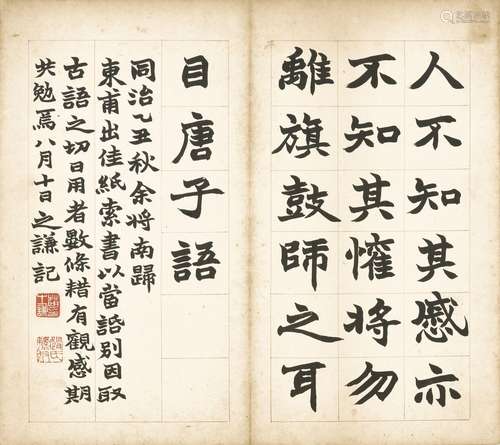 人不知其感亦
不知其懽將勿
離旗鼓師之耳
目唐子語
同治乙丑秋余將南歸
東甫出佳紙索書以當諙別因取
古語之切日用者數條耤有觀感期
共勉焉八月十日之謙記